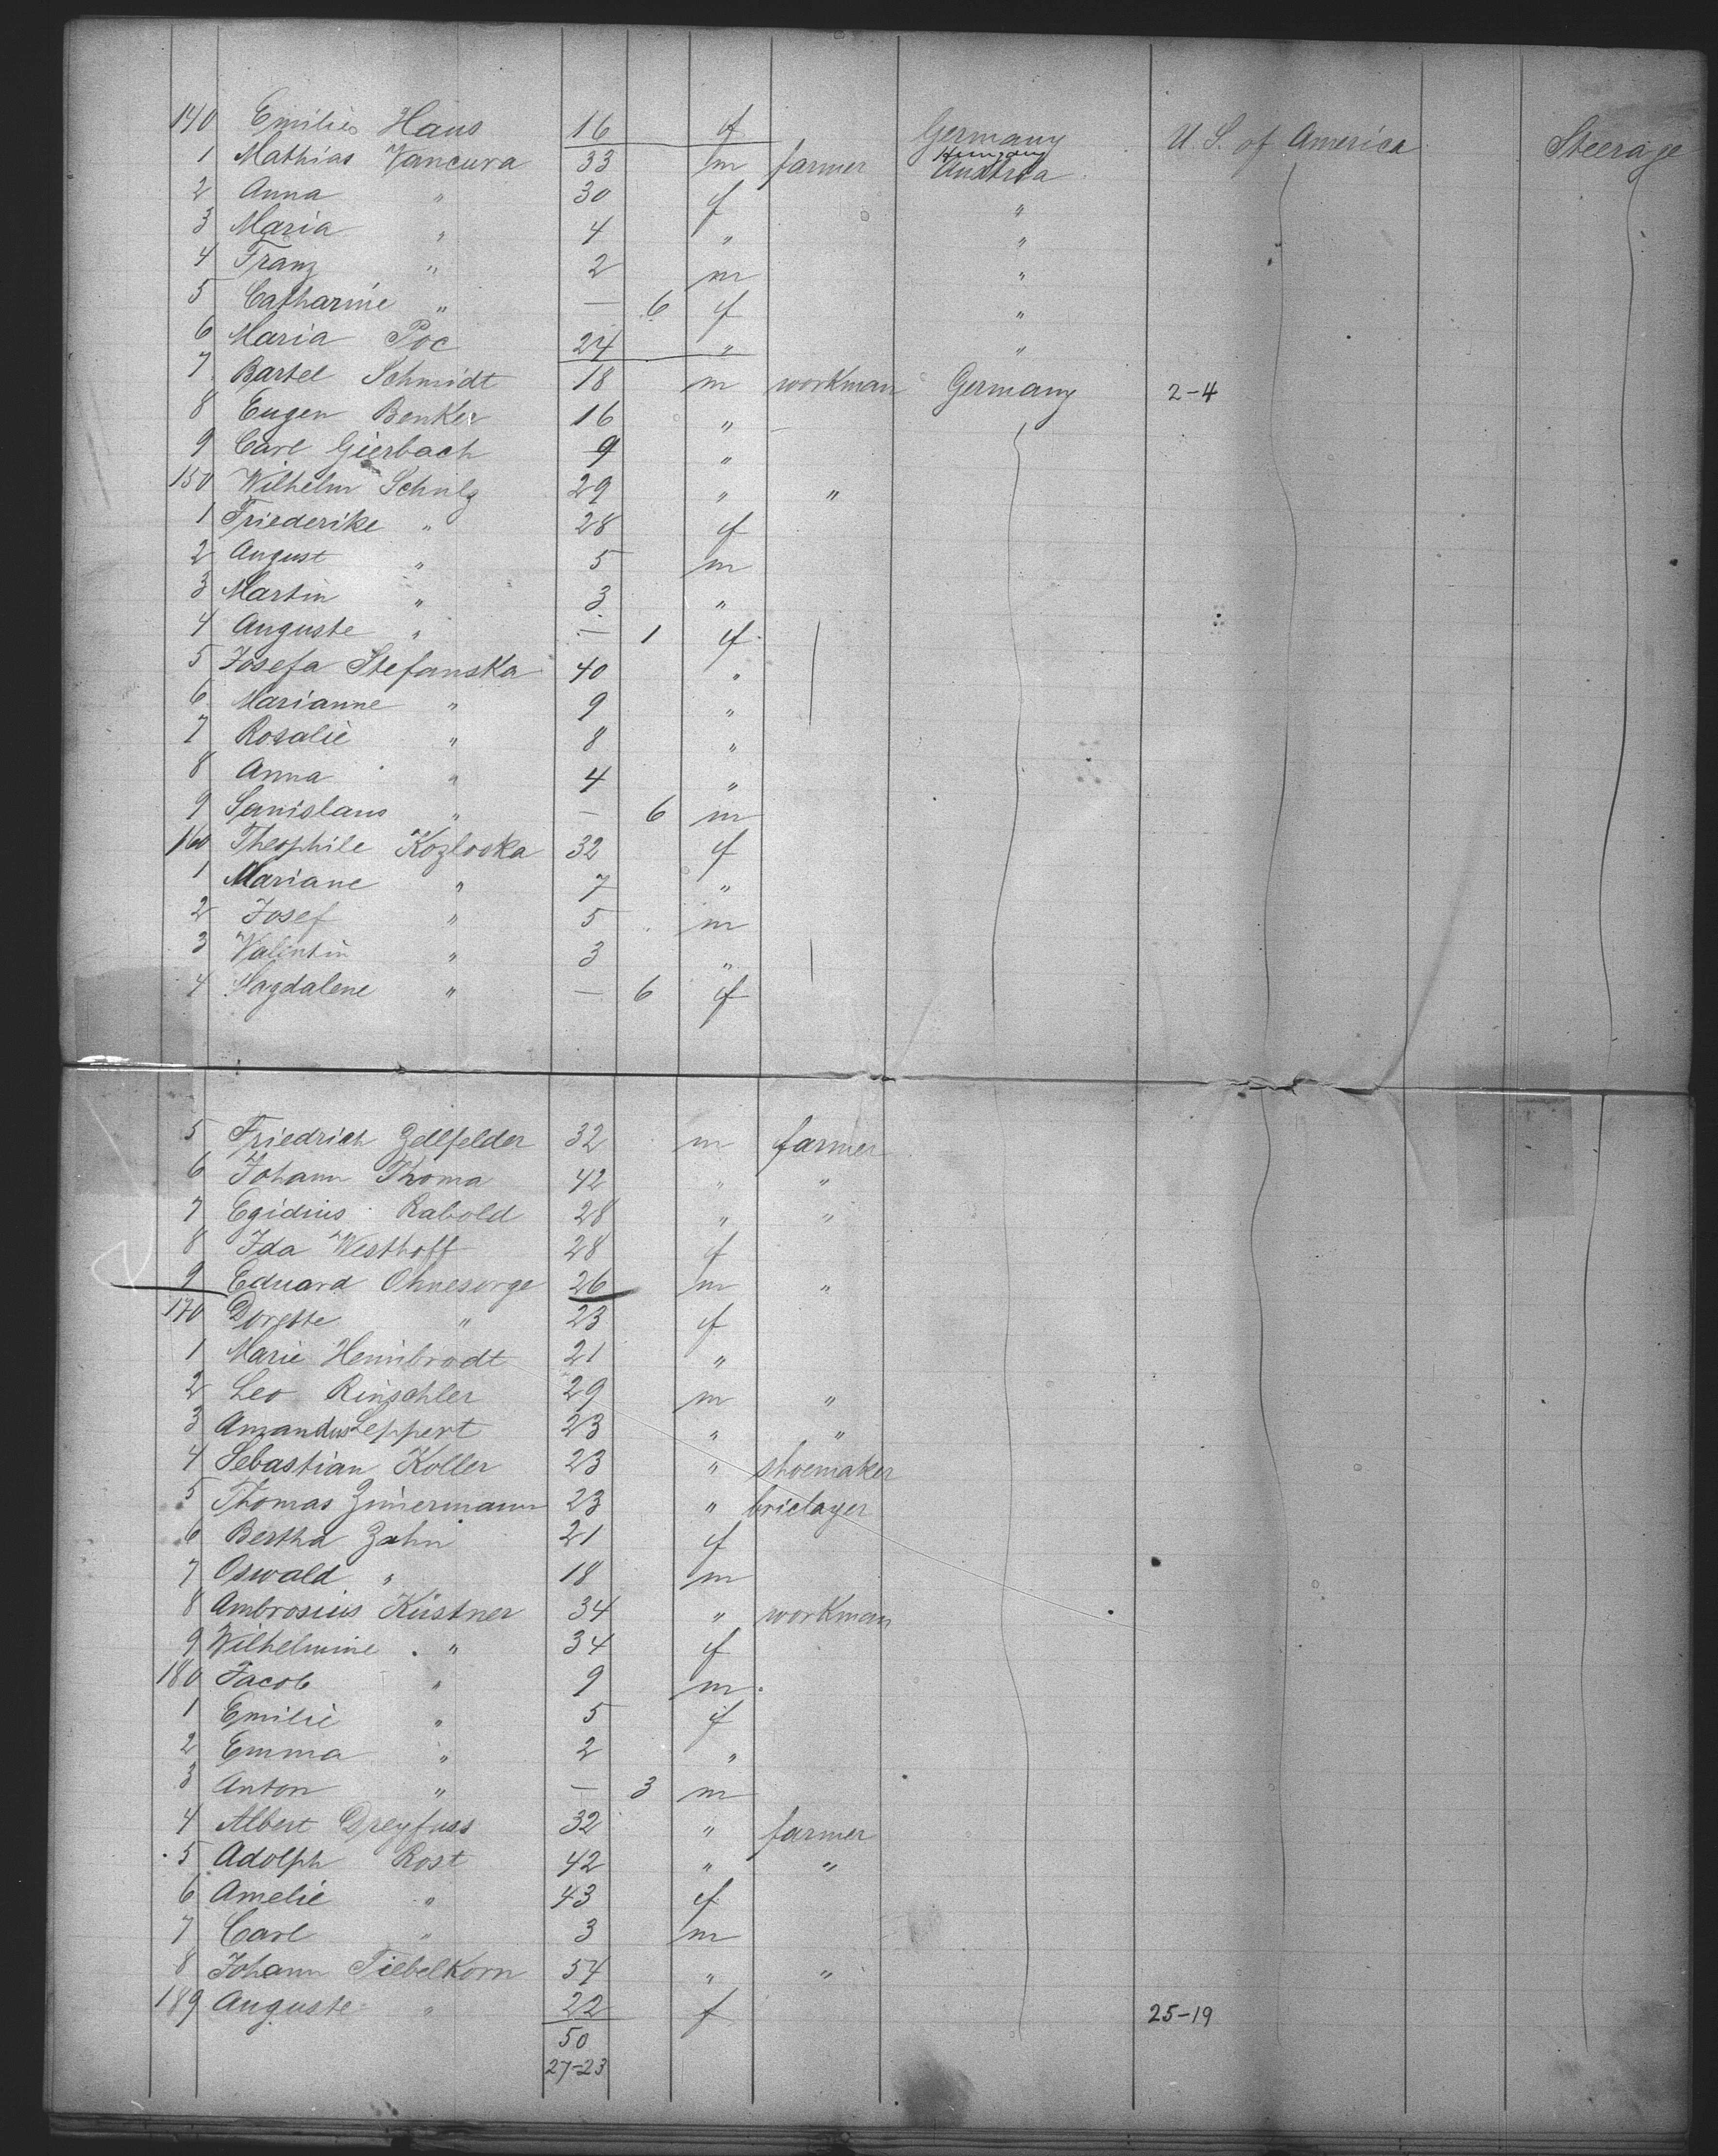 140 Emilie Haus 16 f Germany U. S. of America Steerage
1 Mathias Vancura 33 m farmer Hungary Austria
2 Anna " 30 f "
3 Maria " 4 " "
4 Franz " 2 m "
5 Catharine " — 6 f "
6 Maria Poc 24 " "
7 Bartel Schmidt 18 m workman Germany 2-4
8 Eugen Benker 16 " –
9 Carl Gierbach 9 "
150 Wilhelm Schulz 29 " "
1 Friederike " 28 f
2 August " 5 m
3 Martin " 3 "
4 Auguste " — 1 f
5 Josefa Stefanska 40 "
6 Marianne " 9 "
7 Rosalie " 8 "
8 Anna " 4 "
9 Sanislaus " — 6 m
160 Theophile Kozloska 32 f
1 Mariane " 7 "
2 Josef " 5 m
3 Valintin " 3 "
4 Magdalene " — 6 f
5 Friedrich Zellfelder 32 m farmer
6 Johann Thoma 42 " "
7 Egidius Rabold 28 " "
8 Ida Westhoff 28 f
9 Eduard Ohnesorge 26 m "
170 Dorette " 23 f
1 Marie Heinibrodt 21 "
2 Leo Rinschler 29 m "
3 Amandus Leppert 23 " "
4 Sebastian Koller 23 " shoemaker
5 Thomas Zimermann 23 " briclayer
6 Bertha Zahn 21 f
7 Oswald " 18 m
8 Ambrosius Küstner 34 " workman
9 Wilhelmine " 34 f
180 Jacob " 9 m
1 Emilie " 5 f
2 Emma " 2 "
3 Anton " — 3 m
4 Albert Dreyfuss 32 " farmer
5 Adolph Rost 42 " "
6 Amelie " 43 f
7 Carl " 3 m
8 Johann Tiebelkorn 54 " "
189 Auguste " 22 f 25-19
50
27-23